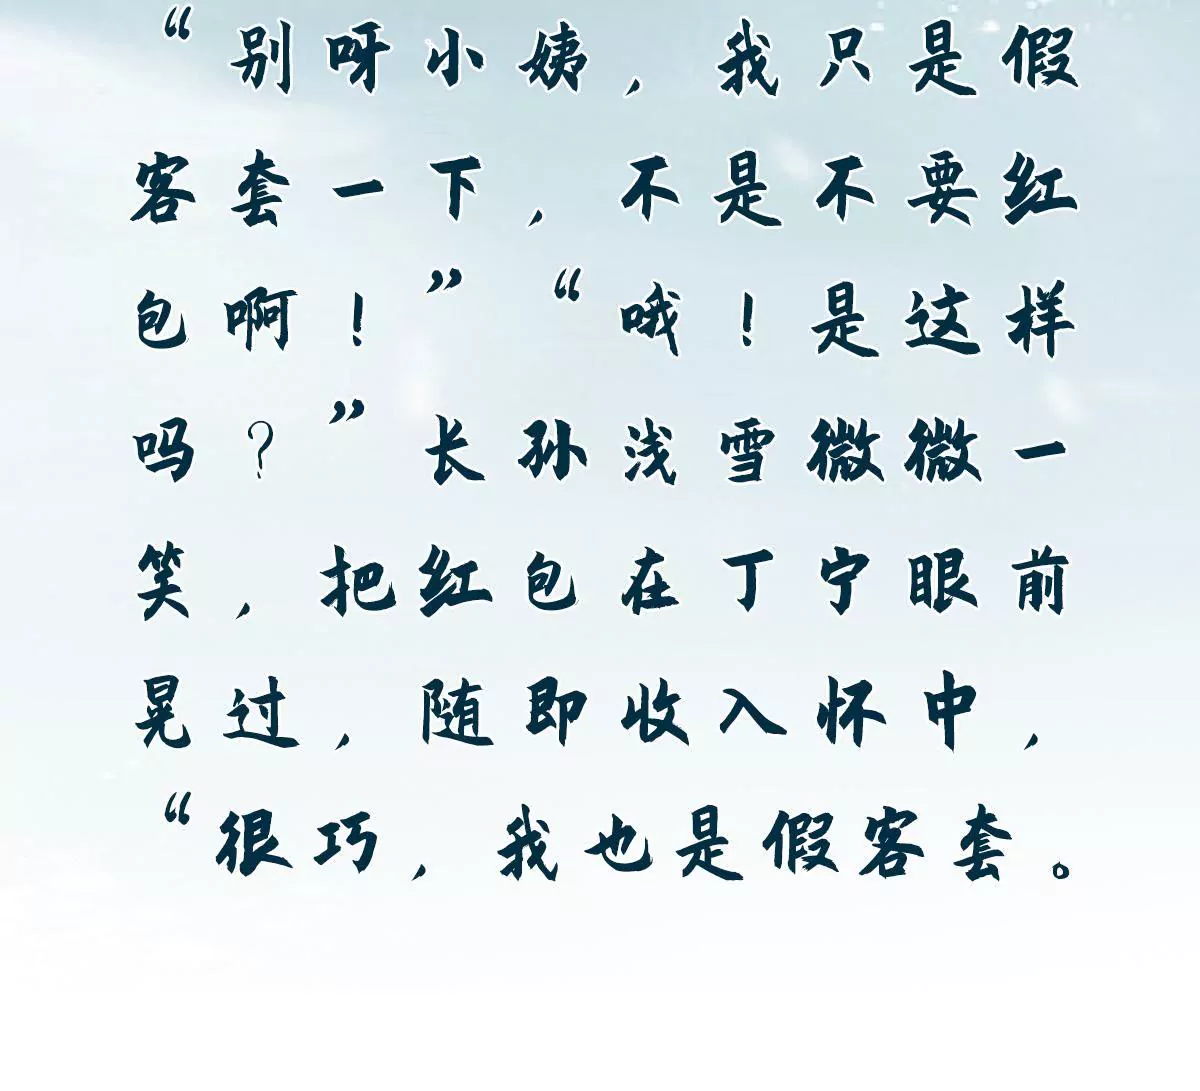 “别呀小姨，我只是假
客套一下，不是不要红
包啊！”“哦！是这样
吗？”长孙浅雪微微一
笑，把红包在丁宁眼前
晃过，随即收入怀中，
“很巧，我也是假客套。